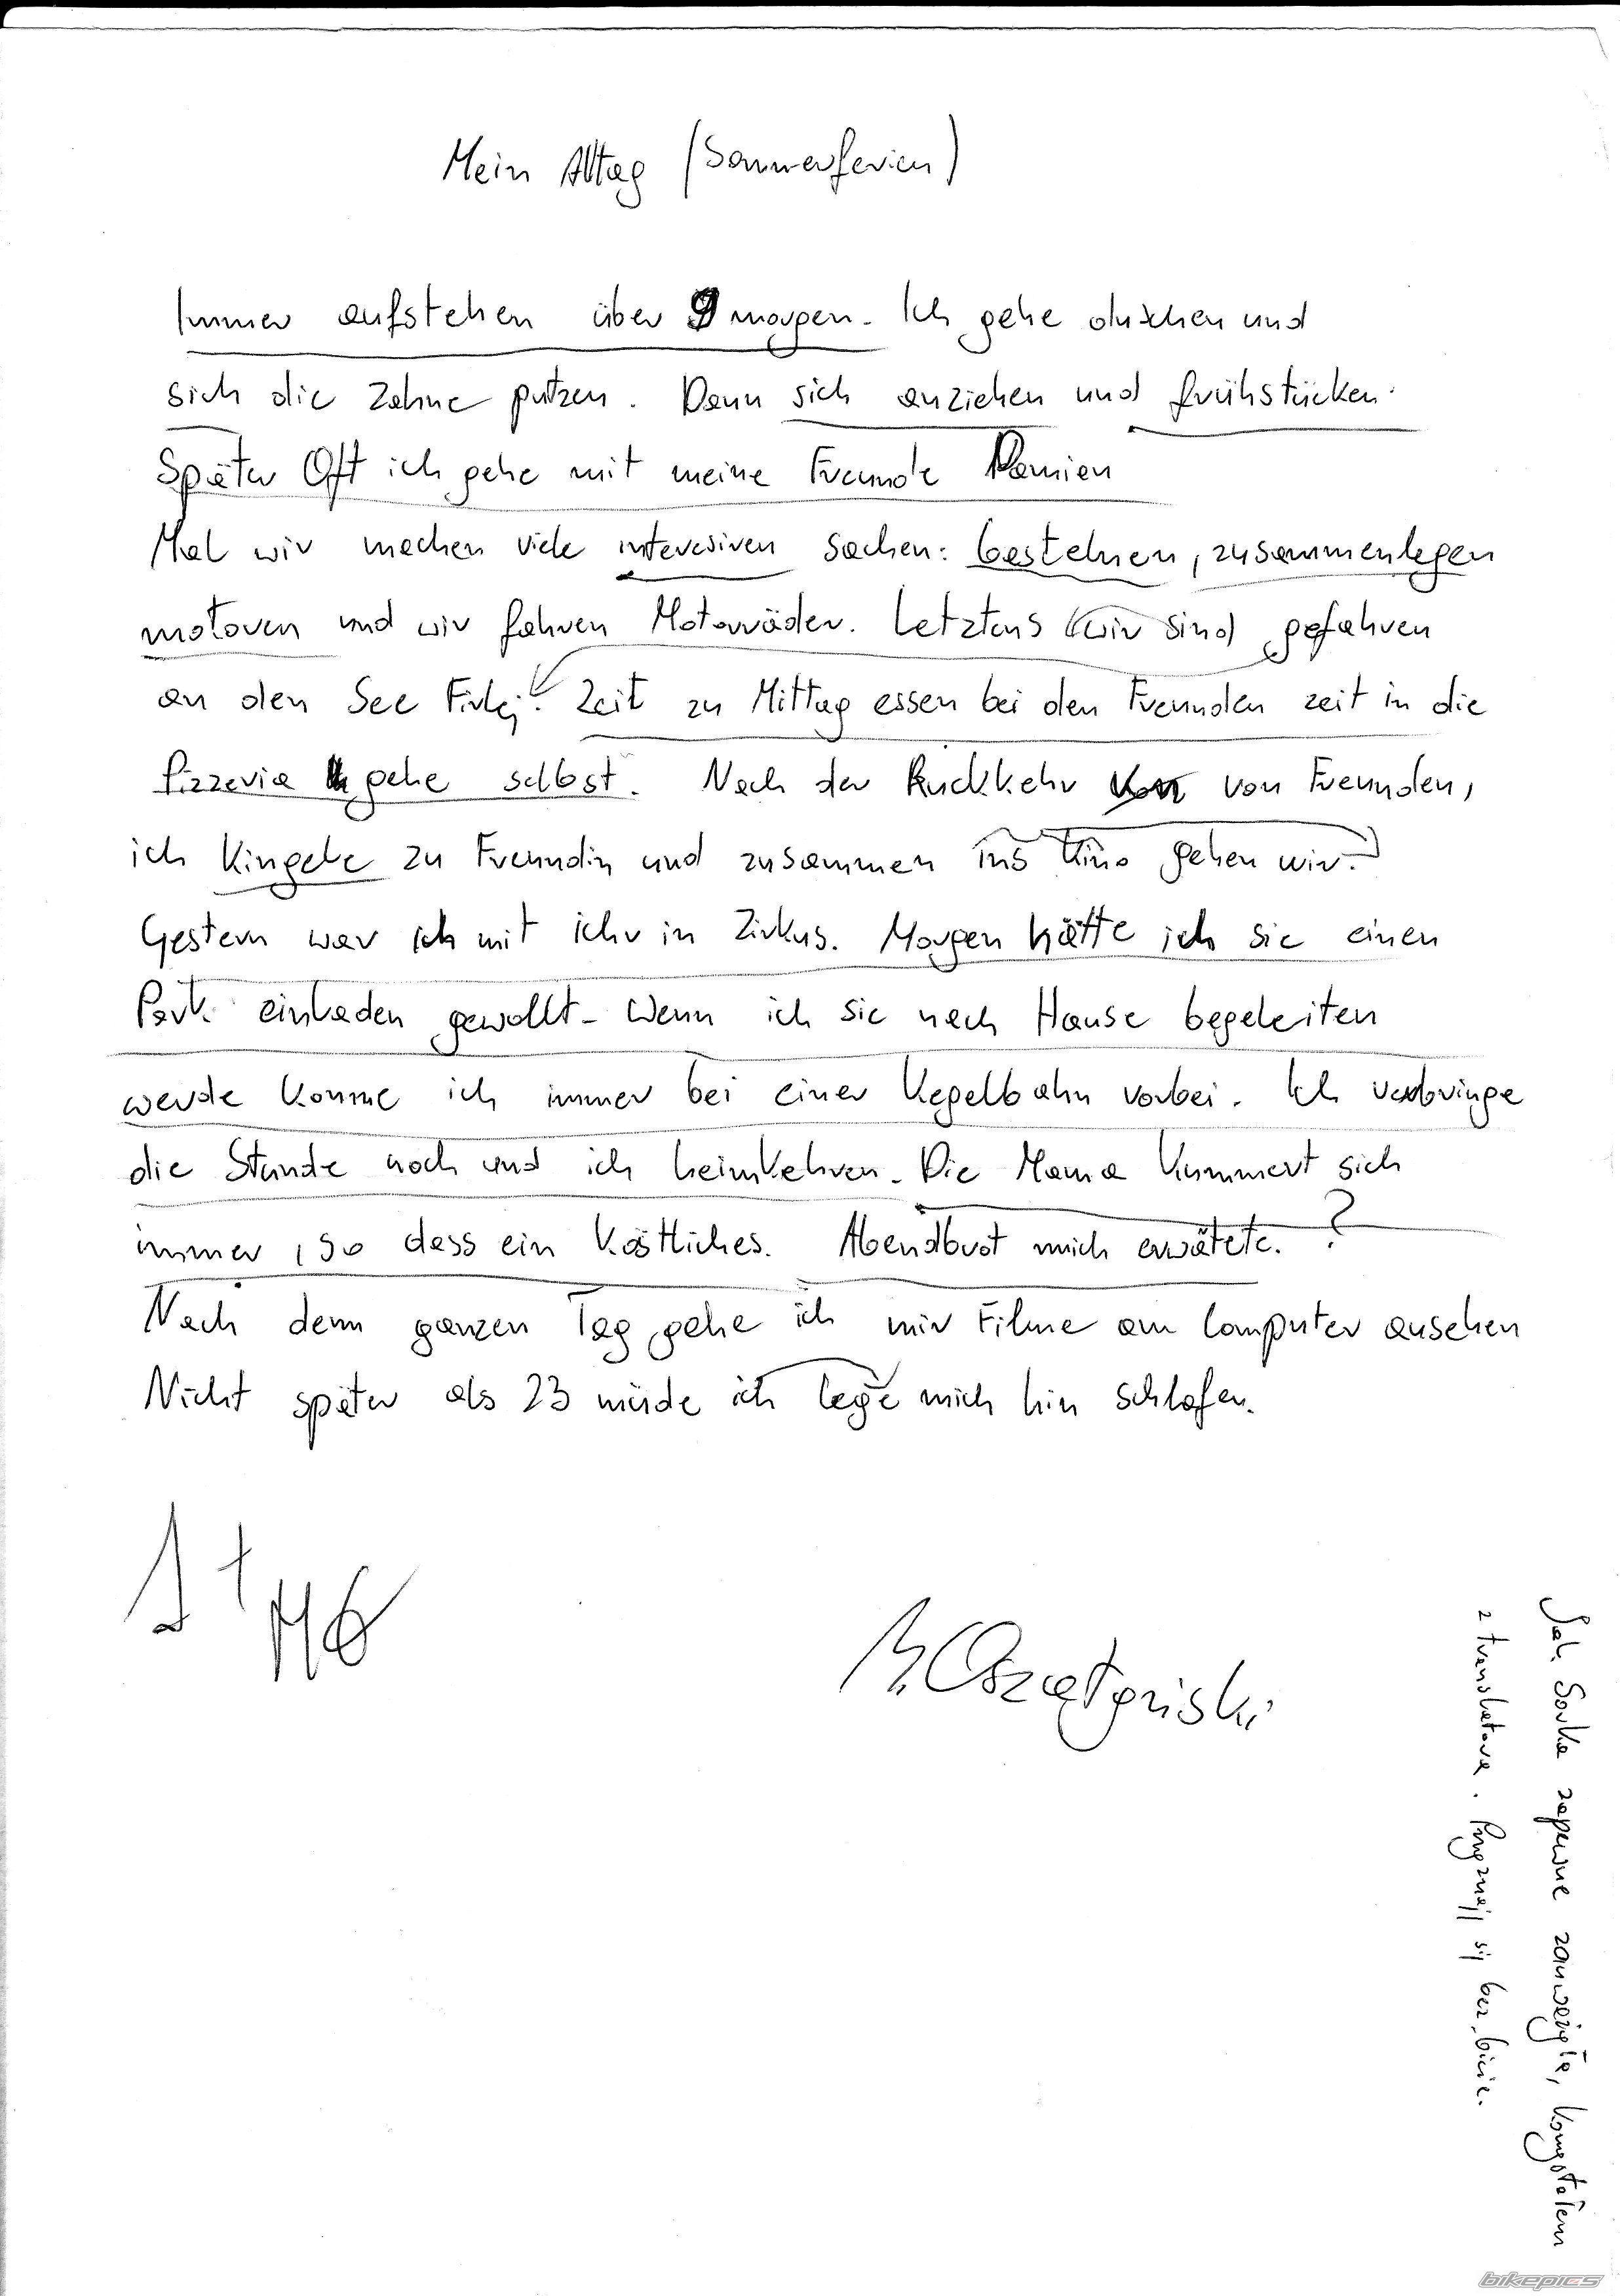 Mein Alltag (Sommerferien)
Immer aufstehen über 9 morgen. Ich gehe duschen und
sich die Zahne putzen. Dann sich anziehen und frühstücken.
Später Oft ich gehe mit meine Freunde Damien
Mal wir machen viele interesiren sachen: bastelnen, zusammenlegen
motoren und wir fahren Motorräder. Letztens (wir sind) gefahren
an den See Firlej. Zeit zu Mittag essen bei den Freunden zeit in die
Pizzeria gehe selbst. Nach der Ruckkehr von Freunden,
ich kingele zu Freundin und zusammen ins Kino gehen wir.
Gestern war ich mit ichr in Zirkus. Morgen hätte ich sie einen
Park einladen gewollt. Wenn ich sie nach Hause begeleiten
werde komme ich immer bei einer Kegelbahn vorbei. Ich verbringe
die Stunde noch und ich heimkehren. Die Mama kummert sich
immer, so dass ein köstliches. Abendbrot mich erwätete. ?
Nach denn ganzen Tag gehe ich mir Filme am Computer ansehen
Nicht später als 23 müde ich lege mich hin schlafen.
Jak Sorka zapewne zauważyła, korzystałem
z translatora. Przyznaję się bez bicia.
bikepics